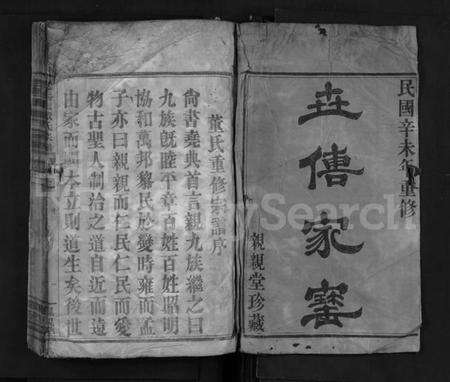 民國辛未年重修
世傳家寶
親親堂珍藏
董氏重修宗譜序
尙書堯典首言親九族繼之曰
九族旣睦平章百姓百姓昭明
協和萬邦黎民於變時雍而孟
子亦曰親親而仁民仁民而愛
物古聖人制治之道自近而遠
由家而國本立則道生矣後世
FamilySearch